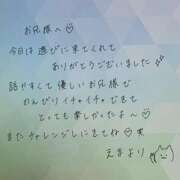 お兄様へ♡
今日は遊びに来てくれて
ありがとうございました
話やすくて優しいお兄様で
のんびりイチャイチャできて
とっても楽しかったよ〜♡
またチャレンジしにきてね♡笑
えまより